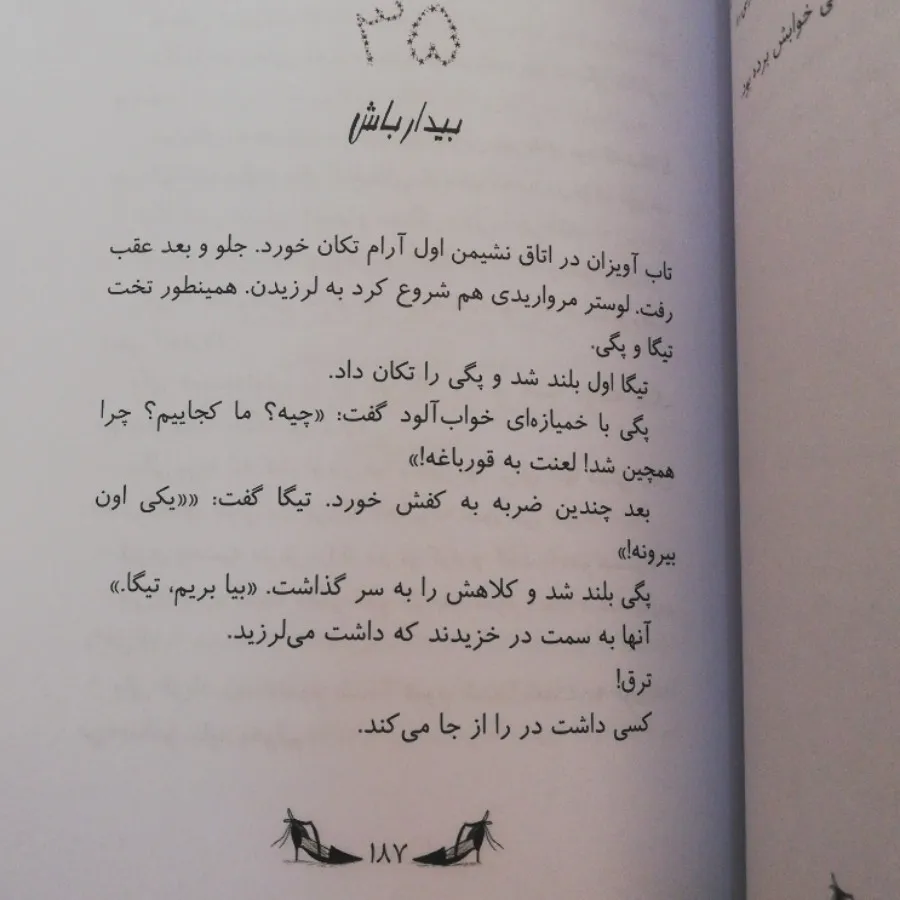 ۳۵
بیدارباش
تاب آویزان در اتاق نشیمن اول آرام تکان خورد. جلو و بعد عقب
رفت. لوستر مرواریدی هم شروع کرد به لرزیدن. همینطور تخت
تیگا و پگی.
تیگا اول بلند شد و پگی را تکان داد.
پگی با خمیازه‌ای خواب‌آلود گفت: «چیه؟ ما کجاییم؟ چرا
همچین شد! لعنت به قورباغه!»
بعد چندین ضربه به کفش خورد. تیگا گفت: ««یکی اون
بیرونه!»
پگی بلند شد و کلاهش را به سر گذاشت. «بیا بریم، تیگا.»
آنها به سمت در خزیدند که داشت می‌لرزید.
ترق!
کسی داشت در را از جا می‌کند.
۱۸۷
خوابش برده بود